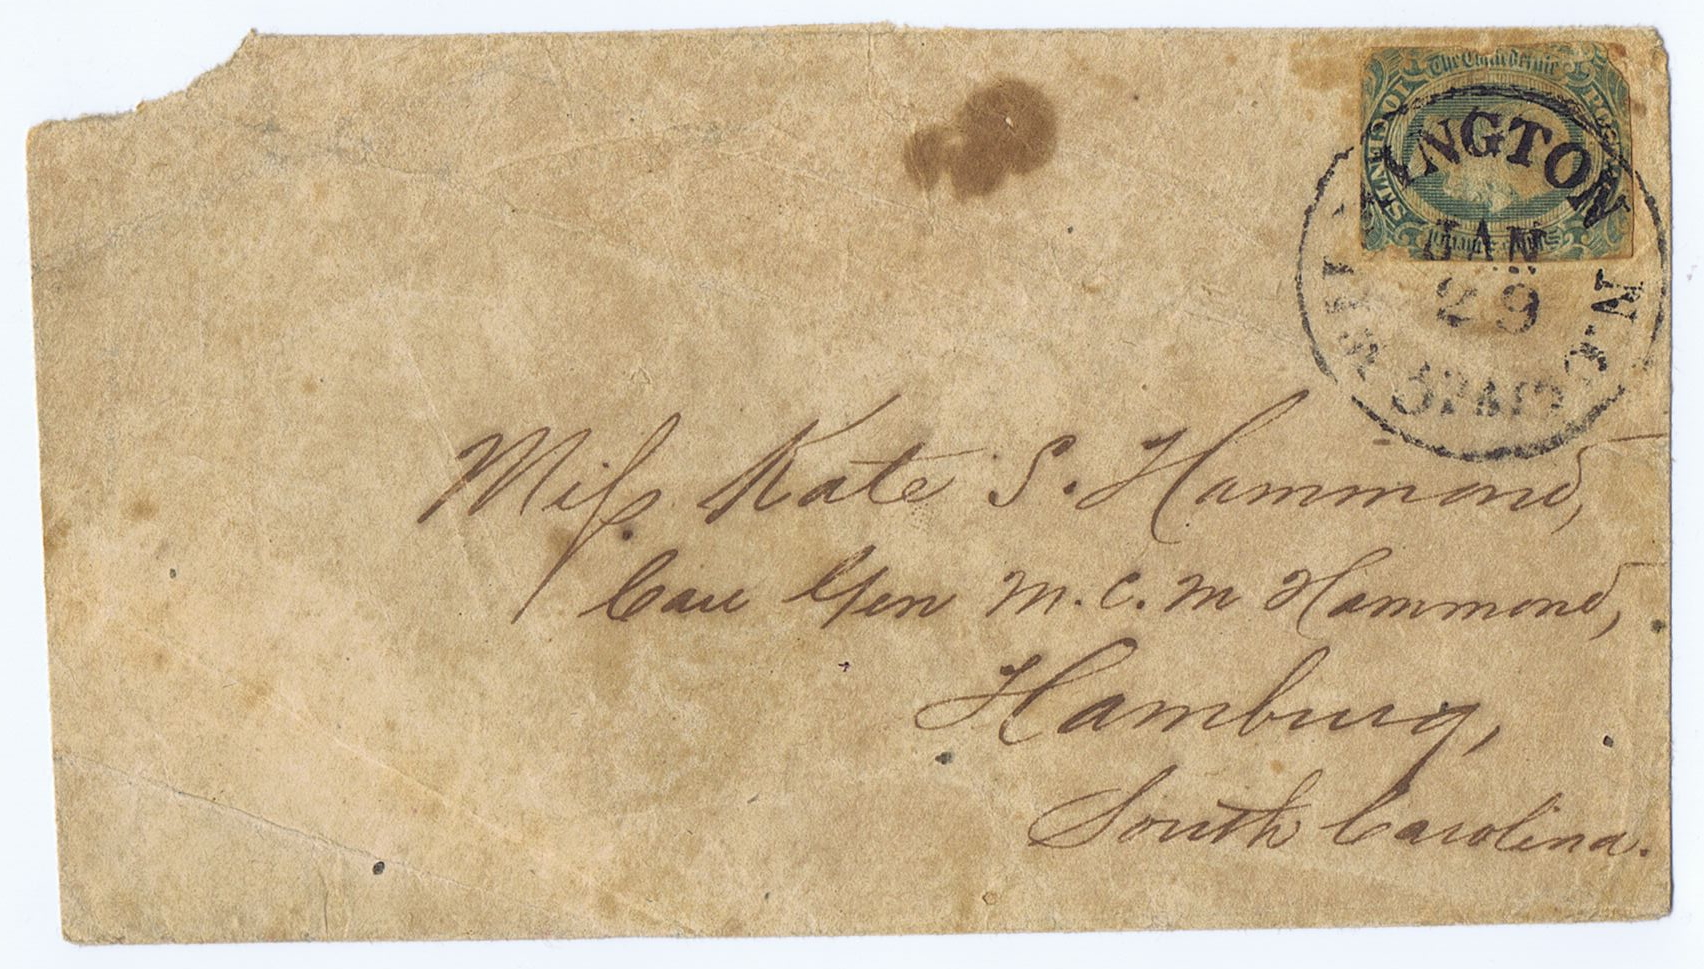 The Confederate
STATES OF
INGTON
JAN
29
N.C.
PAID
Miſs Kate S. Hammond,
Care Gen M. C. M Hammond,
Hamburg,
South Carolina.